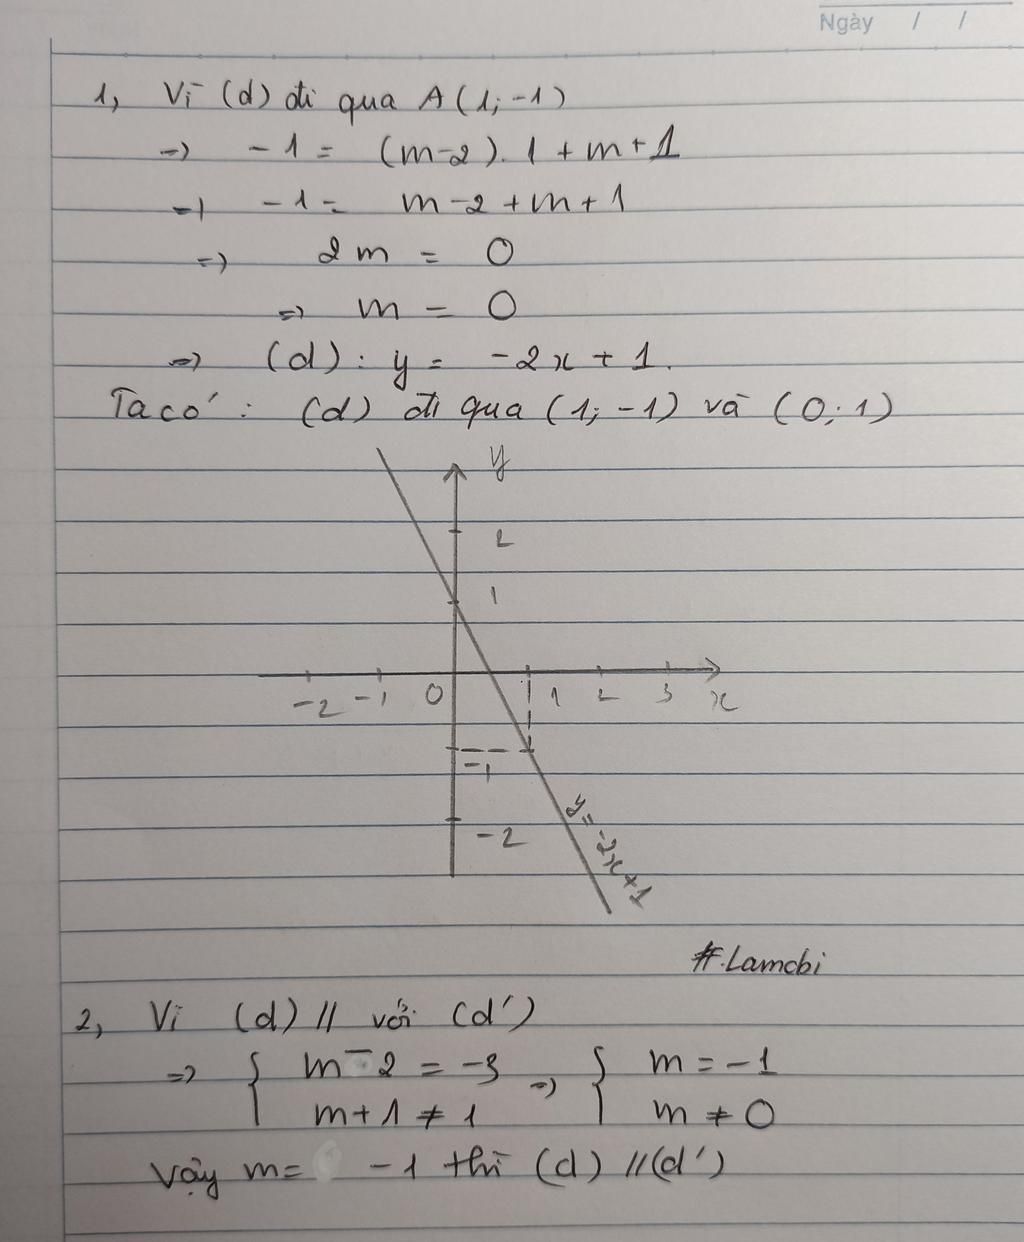 Ngày / /
1, Vì (d) đi qua A(1; -1)
=> -1 = (m-2).1 + m + 1
=> -1 = m - 2 + m + 1
=> 2m = 0
=> m = 0
=> (d) : y = -2x + 1.
Ta có : (d) đi qua (1; -1) và (0; 1)
y
2
1
-2 -1 0 1 2 3 x
-1
-2
y = -2x+1
#.Lamcbi
2, Vì (d) // với (d')
=> { m - 2 = -3 => { m = -1
m + 1 ≠ 1 m ≠ 0
Vậy m = -1 thì (d) //(d')